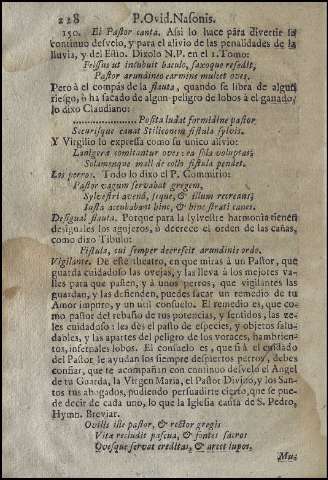 228 P. Ovid. Nasonis.
150. El Pastor canta. Assi lo hace para divertir su
continuo desvelo, y para el alivio de las penalidades de la
lluvia, y del Estio. Dixolo N.P. en el 1. Tomo:
Fessus ut incubuit baculo, saxoque resedit,
Pastor arundineo carmine mulcet oves.
Pero à el compàs de la flauta, quando se libra de algun
riesgo, ò ha sacado de algun peligro de lobos à el ganado,
lo dixo Claudiano:
..................... Posita ludat formidine pastor
Securisque canat Stiliconem fistula sylvis.
Y Virgilio lo expressa como su unico alivio:
Lanigeræ comitantur oves: ea sola voluptas;
Solamenque mali de collo fistula pendet.
Los perros. Todo lo dixo el P. Commirio:
Pastor vagum servabat gregem,
Sylvestri avenâ, seque, & illum recreans;
Juxta accubabant hinc, & hinc strati canes.
Desigual flauta. Porque para la sylvestre harmonia tienen
desiguales los agujeros, ò decrece el orden de las cañas,
como dixo Tibulo:
Fistula, cui semper decrescit arundinis ordo.
Vigilante. De este theatro, en que miras à un Pastor, que
guarda cuidadoso las ovejas, y las lleva à los mejores va-
lles para que pasten, y à unos perros, que vigilantes las
guardan, y las defienden, puedes sacar un remedio de tu
Amor impuro, y un util consuelo. El remedio es, que co-
mo pastor del rebaño de tus potencias, y sentidos, las ve-
les cuidadoso: les dès el pasto de especies, y objetos salu-
dables, y las apartes del peligro de los voraces, hambrien-
tos, infernales lobos. El consuelo es, que si à el cuidado
del Pastor le ayudan los siempre despiertos perros, debes
confiar, que te acompañan con continuo desvelo el Angel
de tu Guarda, la Virgen Maria, el Pastor Divino, y los San-
tos tus abogados, pudiendo persuadirte cierto, que se pue-
de decir de cada uno, lo que la Iglesia canta de S. Pedro,
Hymn. Breviar.
Ovilis ille pastor, & rector gregis
Vitæ recludit pascua, & fontes sacros
Ovesque servat creditas, & arcet lupos.
Mu-